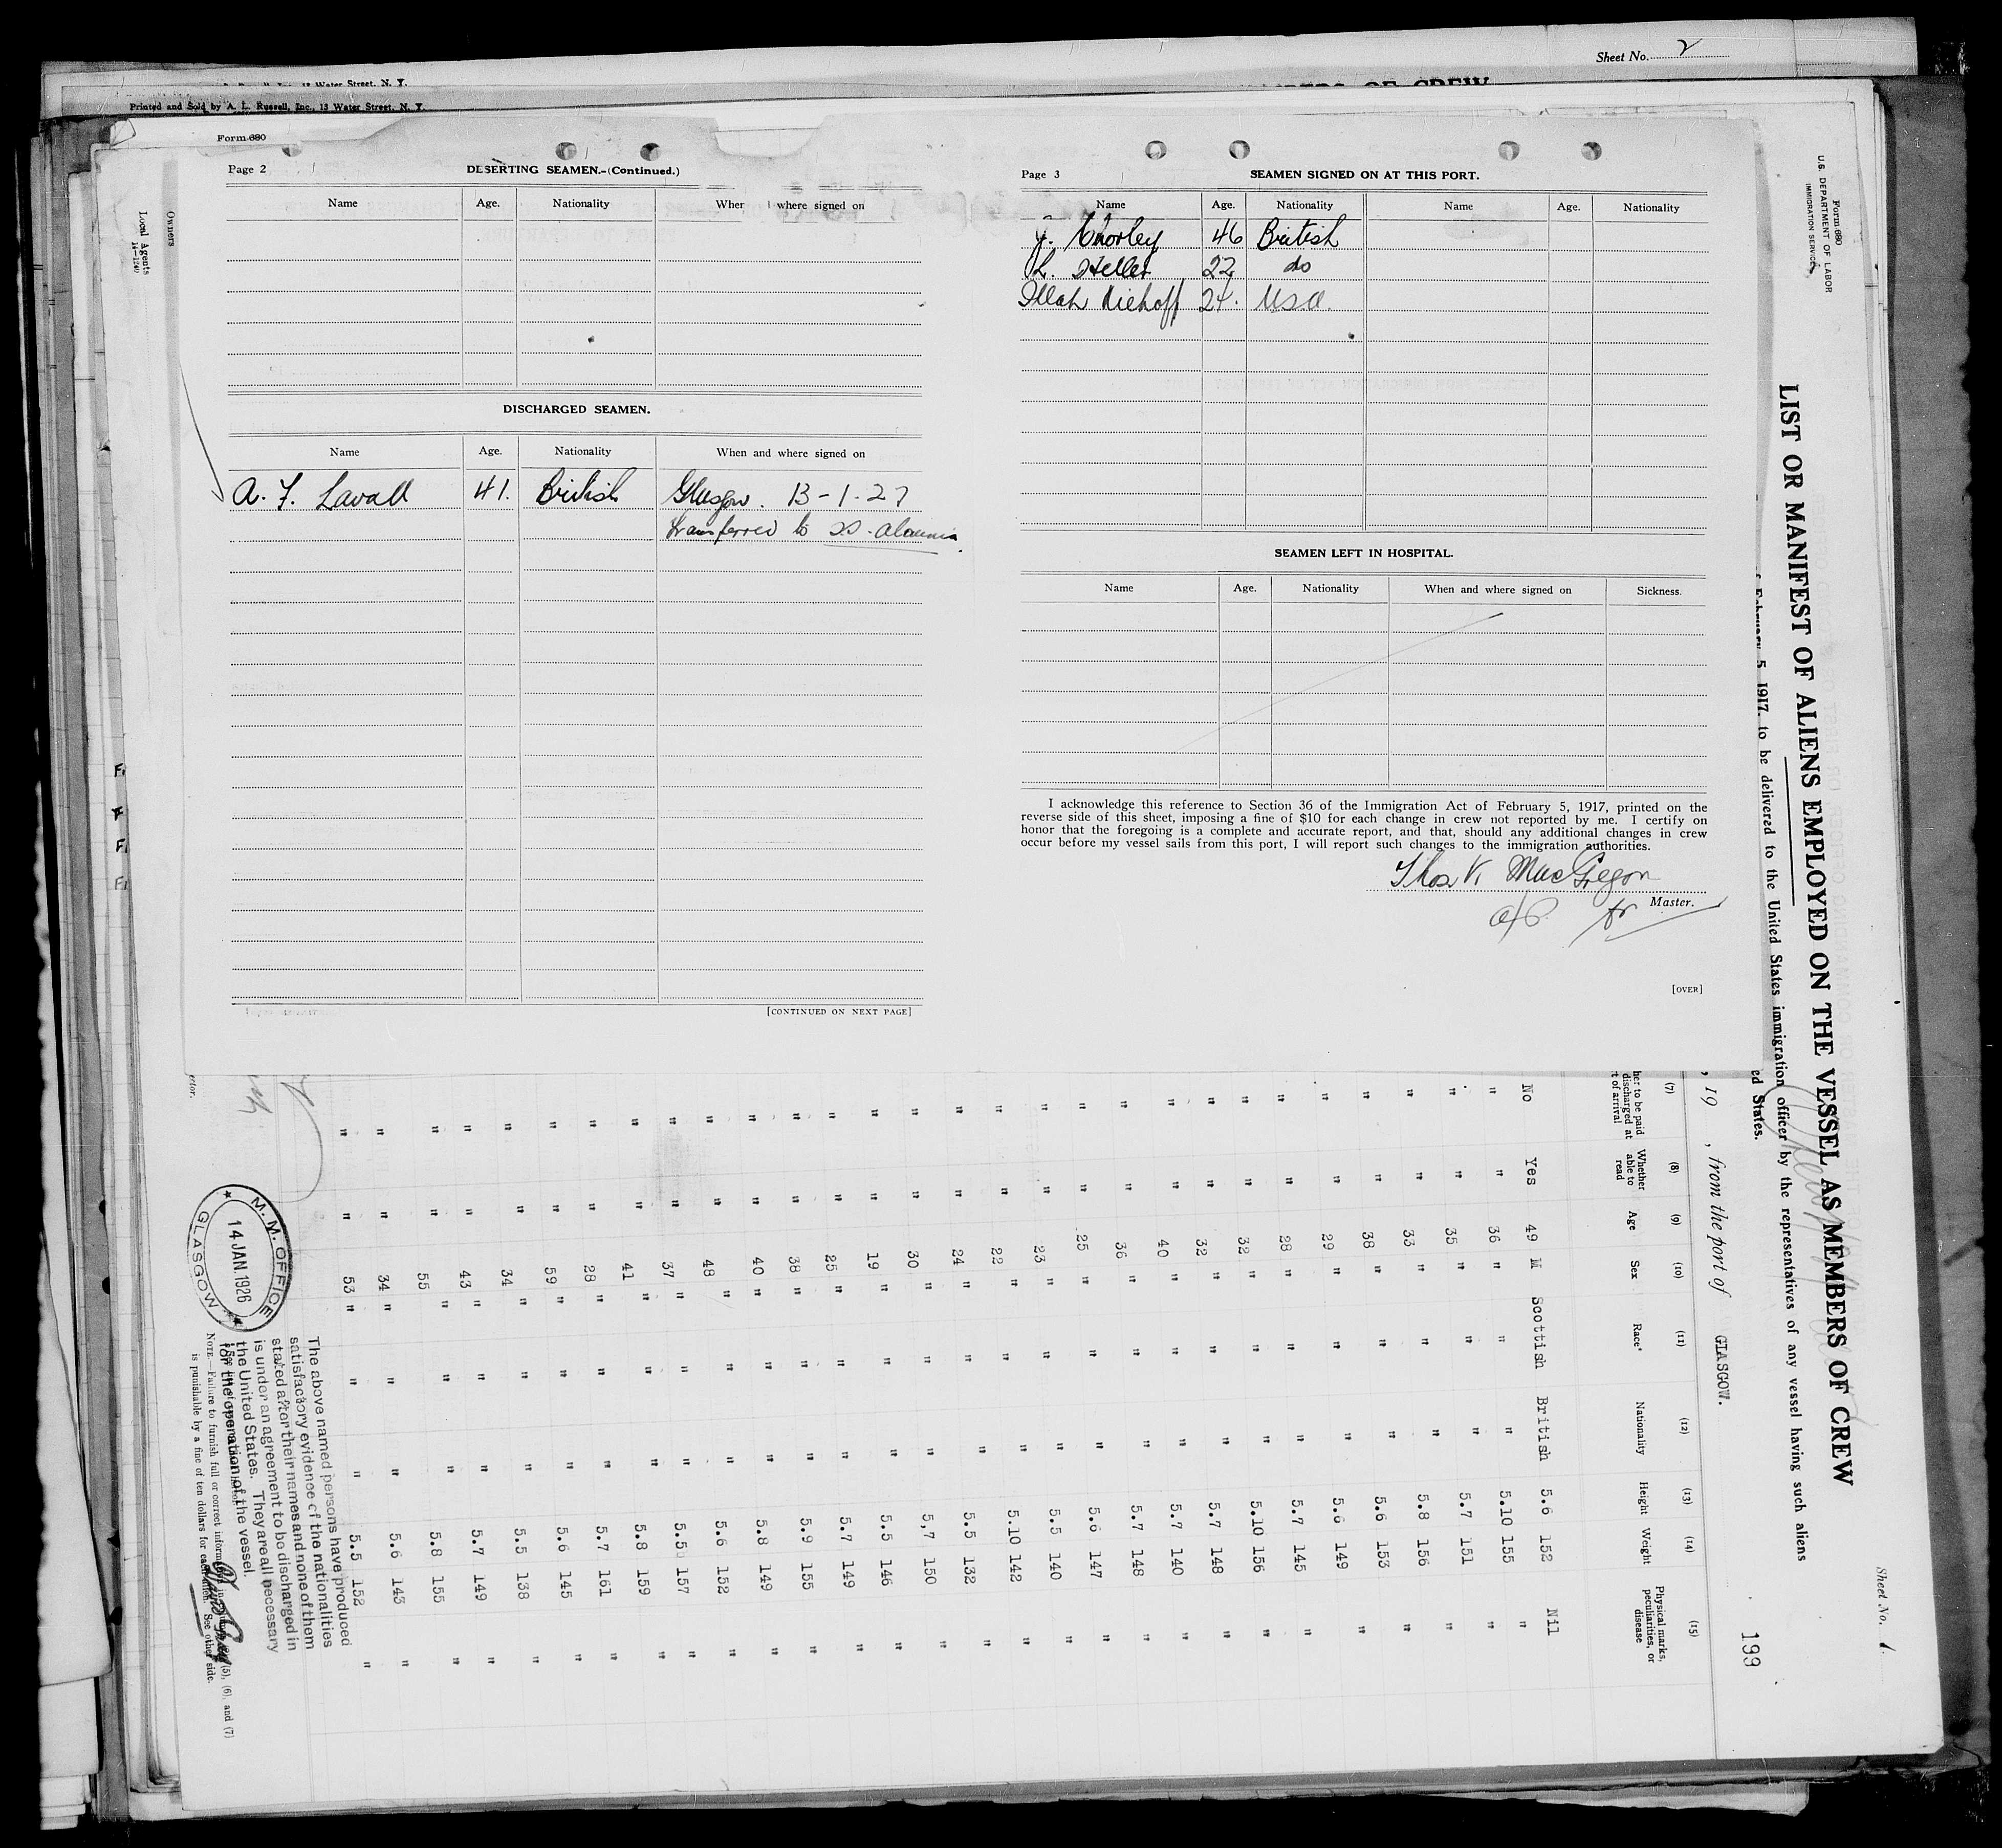 Sheet No. 2
Printed and Sold by A. L. Russell, Inc., 13 Water Street, N. Y.
Form 680
Page 2
DESERTING SEAMEN.-(Continued.)
Name Age. Nationality Wher where signed on
DISCHARGED SEAMEN.
Name Age. Nationality When and where signed on
A. F. Lavall 41. British Glasgow. 13-1-27
transferred to SS.
[CONTINUED ON NEXT PAGE]
Page 3
SEAMEN SIGNED ON AT THIS PORT.
Name Age. Nationality Name Age. Nationality
J. Chorley 46 British
22 do
24. USA.
SEAMEN LEFT IN HOSPITAL.
Name Age. Nationality When and where signed on Sickness.
I acknowledge this reference to Section 36 of the Immigration Act of February 5, 1917, printed on the
reverse side of this sheet, imposing a fine of $10 for each change in crew not reported by me. I certify on
honor that the foregoing is a complete and accurate report, and that, should any additional changes in crew
occur before my vessel sails from this port, I will report such changes to the immigration authorities.
Thos V. MacGregor
Master.
[OVER]
Owners
Local Agents
14-1240
Form 680
U.S. DEPARTMENT OF LABOR
IMMIGRATION SERVICE
Sheet No. 1.
LIST OR MANIFEST OF ALIENS EMPLOYED ON THE VESSEL AS MEMBERS OF CREW
February 5, 1917, to be delivered to the United States immigration officer by the representatives of any vessel having such aliens
ed States.
199
, 19 , from the port of GLASGOW.
(7) (8) (9) (10) (11) (12) (13) (14) (15)
her to be paid discharged at t of arrival Whether able to read Age Sex Race* Nationality Height Weight Physical marks, peculiarities, or disease
No Yes 49 M Scottish British 5.6 152 Nil
" " 36 " " " 5.10 155 "
" " 35 " " " 5.7 151 "
" " 33 " " " 5.8 156 "
" " 38 " " " 5.6 153 "
" " 29 " " " 5.6 149 "
" " 28 " " " 5.7 145 "
" " 32 " " " 5.10 156 "
" " 32 " " " 5.7 148 "
" " 40 " " " 5.7 140 "
" " 36 " " " 5.7 148 "
" " 25 " " " 5.6 147 "
" " 23 " " " 5.5 140 "
" " 22 " " " 5.10 142 "
" " 24 " " " 5.5 132 "
" " 30 " " " 5,7 150 "
" " 19 " " " 5.5 146 "
" " 25 " " " 5.7 149 "
" " 38 " " " 5.9 155 "
" " 40 " " " 5.8 149 "
" " 48 " " " 5.6 152 "
" " 37 " " " 5.5 157 "
" " 41 " " " 5.8 159 "
" " 28 " " " 5.7 161 "
" " 59 " " " 5.6 145 "
" " 34 " " " 5.5 138 "
" " 43 " " " 5.7 149 "
" " 55 " " " 5.8 155 "
" " 34 " " " 5.6 143 "
" " 53 " " " 5.5 152 "
The above named persons have produced
satisfactory evidence of the nationalities
stated after their names and none of them
is under an agreement to be discharged in
the United States. They are all necessary
for the operation of the vessel.
NOTE.—Failure to furnish full or correct information (5), (6), and (7)
is punishable by a fine of ten dollars for each alien. See other side.
M. M. OFFICE
14 JAN. 1926
GLASGOW